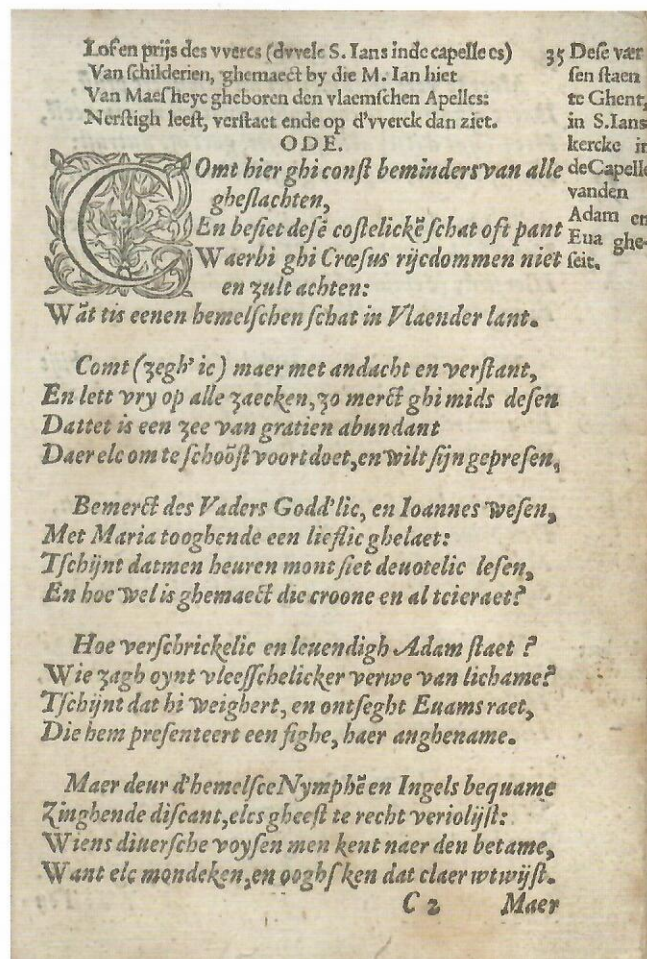 Lof en prijs des vvercs (dvvelc S. Ians inde capelle es)
Van schilderien, ghemaect by die M. Ian hiet
Van Maesheyc gheboren den vlaemschen Apelles:
Nerstigh leest, verstaet ende op d'vverck dan ziet.
ODE.
COmt hier ghi const beminders van alle
gheslachten,
En besiet dese costelickē schat oft pant
Waerbi ghi Crœsus rijcdommen niet
en zult achten:
Wāt tis eenen hemelschen schat in Vlaender lant.
Comt (zegh' ic) maer met andacht en verstant,
En lett vry op alle zaecken, zo merct ghi mids desen
Dattet is een zee van gratien abundant
Daer elc om te schoōst voort doet, en wilt sijn gepresen,
Bemerct des Vaders Godd'lic, en Ioannes wesen,
Met Maria tooghende een lieflic ghelaet:
Tschijnt datmen heuren mont siet deuotelic lesen,
En hoe wel is ghemaect die croone en al tcieraet?
Hoe verschrickelic en leuendigh Adam staet?
Wie zagh oynt vleesschelicker verwe van lichame?
Tschijnt dat hi weighert, en ontseght Euams raet,
Die hem presenteert een fighe, haer anghename.
Maer deur d'hemelsce Nymphē en Ingels bequame
Zinghende discant, elcs gheest te recht veriolijst:
Wiens diuersche voysen men kent naer den betame,
Want elc mondeken, en ooghsken dat claer wtwijst.
C 2 Maer
35 Dese vær
sen staen
te Ghent,
in S. Ians
kercke in
de Capelle
vanden
Adam en
Eua ghe-
seit.